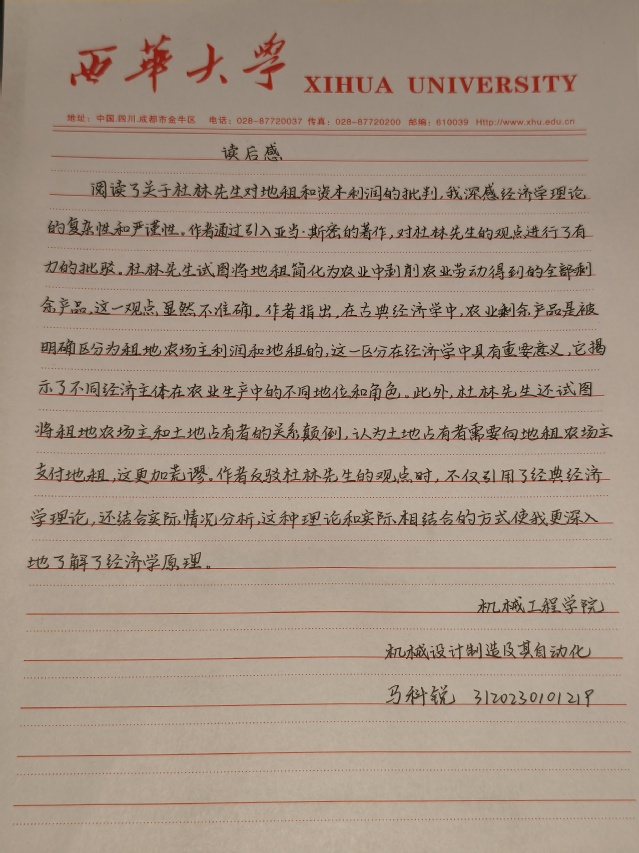 西华大学 XIHUA UNIVERSITY
地址：中国.四川.成都市金牛区 电话：028-87720037 传真：028-87720200 邮编：610039 Http://www.xhu.edu.cn
读后感
阅读了关于杜林先生对地租和资本利润的批判，我深感经济学理论
的复杂性和严谨性。作者通过引入亚当·斯密的著作，对杜林先生的观点进行了有
力的批驳。杜林先生试图将地租简化为农业中剥削农业劳动得到的全部剩
余产品，这一观点显然不准确。作者指出，在古典经济学中，农业剩余产品是被
明确区分为租地农场主利润和地租的，这一区分在经济学中具有重要意义，它揭
示了不同经济主体在农业生产中的不同地位和角色。此外，杜林先生还试图
将租地农场主和土地占有者的关系颠倒，认为土地占有者需要向地租农场主
支付地租，这更加荒谬。作者反驳杜林先生的观点时，不仅引用了经典经济
学理论，还结合实际情况分析，这种理论和实际相结合的方式使我更深入
地了解了经济学原理。
机械工程学院
机械设计制造及其自动化
马科锐 3120230101219